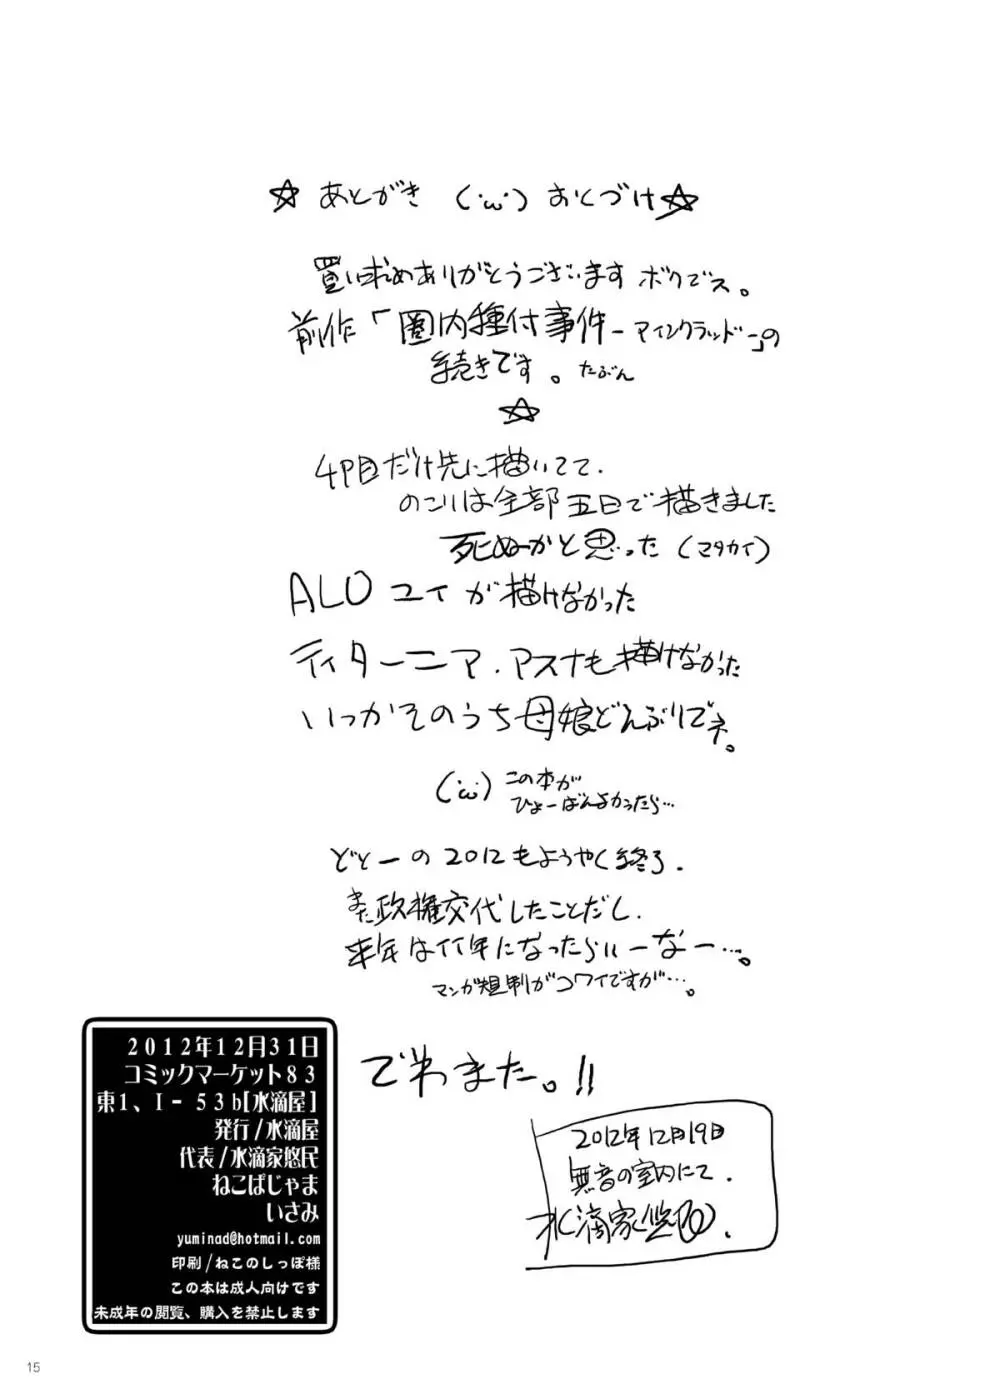 ☆ あとがき (･ω･) おくづけ☆
買い求めありがとうございます ボクでス。
前作「圏内種付事件－アインクラッド－」の
続きです。たぶん
☆
4P目だけ先に描いてて.
のこりは全部五日で描きました
死ぬかと思った (マタカイ)
ALO ユイ が描けなかった
ティターニア.アスナも描けなかった
いっかそのうち母娘どんぶりでネ。
(･ω･) この本が
ひょーばんよかったら…
どとーの2012もようやく終了.
また政権交代したことだし.
来年はいい年になったらいーなー…。
マンガ規制がコワイですが…。
でわまた。!!
2012年12月19日
無音の室内にて.
水滴家悠民.
2012年12月31日
コミックマーケット83
東1、I－53b[水滴屋]
発行/水滴屋
代表/水滴家悠民
ねこぱじゃま
いさみ
yuminad@hotmail.com
印刷/ねこのしっぽ様
この本は成人向けです
未成年の閲覧、購入を禁止します
15